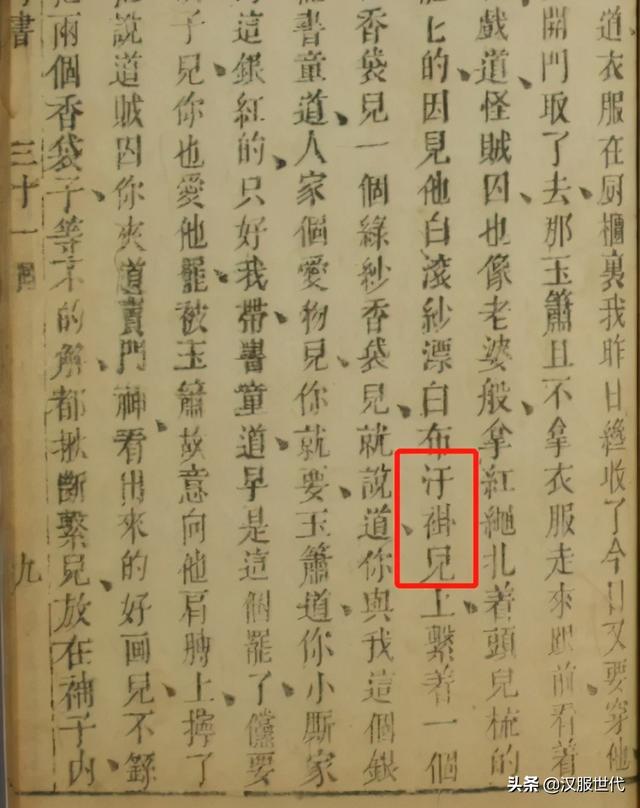 道衣服在厨櫃裏我昨日纔收了今日又要穿他
開門取了去、那玉簫且不拿衣服走來跟前看着
戲道怪賊囚也像老婆般、拿紅繩扎着頭兒梳的
上的、因見他白滾紗漂白布汗褂兒上繫着一個
香袋兒一個綠紗香袋兒、就說道、你與我這個銀
書童道、人家個愛物兒、你就要玉簫道、你小厮家
這銀紅的、只好我帶、書童道、早是這個罷了、儻要
子兒、你也愛他罷、被玉簫故意向他肩膊上、擰了
說道賊囚你夾道賣門神、看出來的好画兒、不繇
兩個香袋子、等不的解、都揪斷繫兒、放在袖子内
書 三十一回 九
头条 @汉服世代